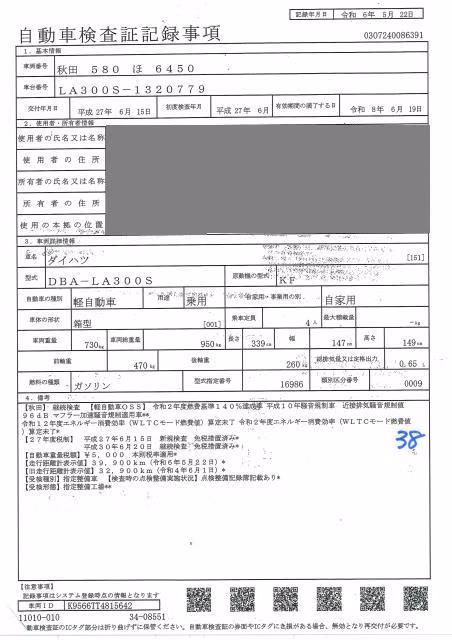 記録年月日 令和 6年 5月 22日
自動車検査証記録事項
0307240086391
1．基本情報
車両番号 秋田 580 ほ 6450
車台番号 LA300S-1320779
交付年月日 平成 27年 6月 15日 初度検査年月 平成 27年 6月 有効期間の満了する日 令和 8年 6月 19日
2．使用者・所有者情報
使用者の氏名又は名称
使用者の住所
所有者の氏名又は名称
所有者の住所
使用の本拠の位置
3．車両詳細情報
車名 ダイハツ [151]
型式 DBA-LA300S 原動機の型式 KF
自動車の種別 軽自動車 用途 乗用 自家用・事業用の別 自家用
車体の形状 箱型 [001] 乗車定員 4人 最大積載量 -kg
車両重量 730kg 車両総重量 950kg 長さ 339cm 幅 147cm 高さ 149cm
前軸重 470kg 後軸重 260kg 総排気量又は定格出力 0.65 L
燃料の種類 ガソリン 型式指定番号 16986 類別区分番号 0009
4．備考
【秋田】 継続検査 【軽自動車OSS】 令和2年度燃費基準140%達成車 平成10年騒音規制車 近接排気騒音規制値
96dB マフラー加速騒音規制適用車**
令和12年度エネルギー消費効率（WLTCモード燃費値）算定未了 令和2年度エネルギー消費効率（WLTCモード燃費値
）算定未了*
【27年度税制】 平成27年6月15日 新規検査 免税措置済み*
平成30年6月20日 継続検査 免税措置済み*
【自動車重量税額】 ¥5,000 本則税率適用*
【走行距離計表示値】39,900km（令和6年5月22日）*
【旧走行距離計表示値】32,900km（令和4年6月1日）*
【受検種別】指定整備車 【検査時の点検整備実施状況】点検整備記録簿記載あり*
【受検形態】指定整備工場**
38
【注意事項】
記録事項はシステム登録時点の情報となります
車両ID K9566TT4815642
11010-010 34-08551
動車検査証のICタグ部分は折り曲げずに保管ください。自動車検査証の券面やICタグに毀損がある場合、無効となり再交付が必要です。